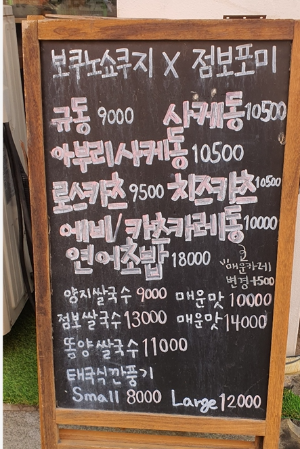 보쿠노쇼쿠지 X 점보포미
규동 9000 사케동 10500
아부리사케동 10500
로스카츠 9500 치즈카츠 10500
에비/카츠카레동 10000
연어초밥 18000
매운카레
변경+500
양지쌀국수 9000 매운맛 10000
점보쌀국수 13000 매운맛 14000
똠양쌀국수 11000
태국식깐풍기
Small 8000 Large 12000